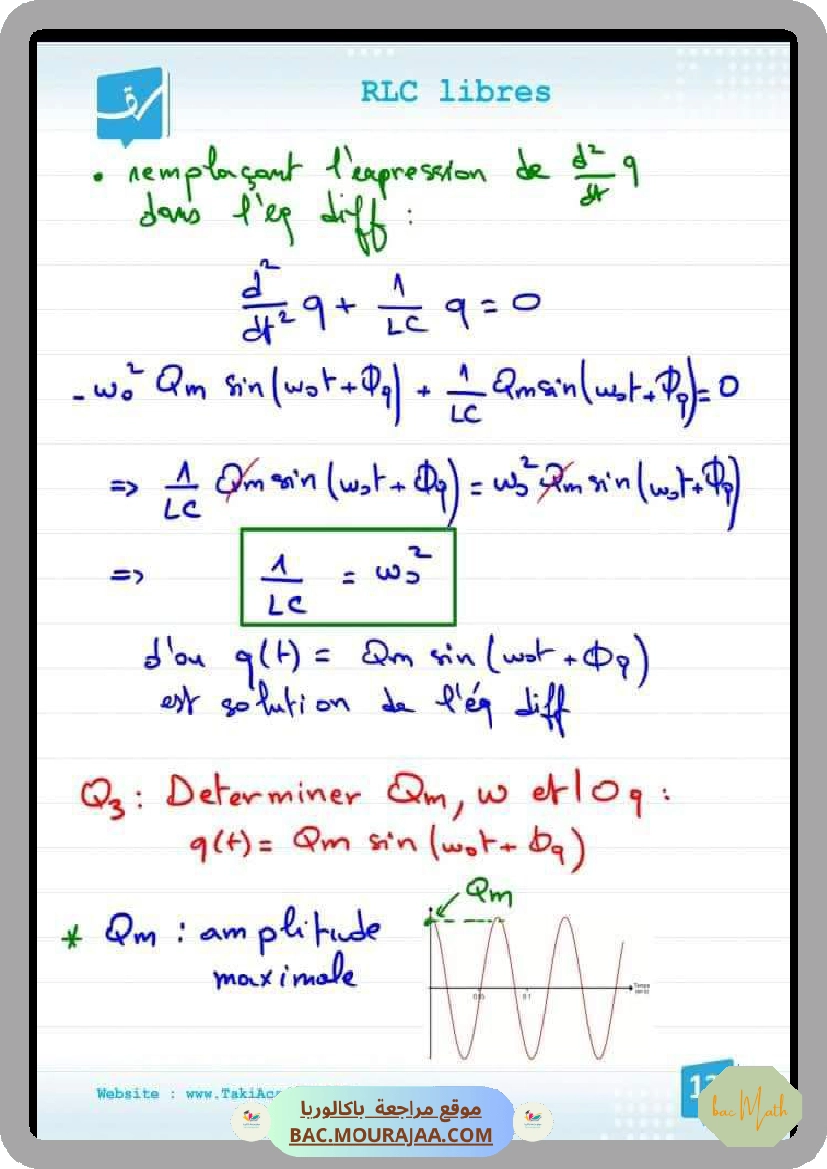 سرق
RLC libres
• remplaçant l'expression de d²/dt q
dans l'eq diff :
d²/dt² q + 1/LC q = 0
- ω₀² Qm sin(ω₀t + Φq) + 1/LC Qm sin(ω₀t + Φq) = 0
=> 1/LC Qm sin(ω₀t + Φq) = ω₀² Qm sin(ω₀t + Φq)
=> 1/LC = ω₀²
d'ou q(t) = Qm sin(ω₀t + Φq)
est solution de l'éq diff
Q3 : Determiner Qm, w et Φq :
q(t) = Qm sin(ω₀t + Φq)
Qm
* Qm : amplitude
maximale
0.05 0.1
Website : www.TakiAc
موقع مراجعة باكالوريا
BAC.MOURAJAA.COM
bac Math